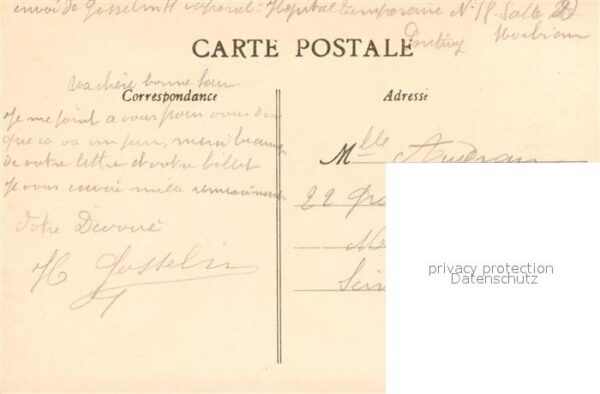 envoi de Gosselin H caporal: Hôpital temporaire N° 18 Salle
Pontivy Morbihan
CARTE POSTALE
Correspondance
Adresse
ma chère bonne Sœur
Je me joint a vous pour vous dire
que ca va un peu, merci beaucoup
de votre lettre et votre billet
Je vous envoie mille remerciment
Votre Dévoué
H Gosselin
Mlle
22
privacy protection
Datenschutz